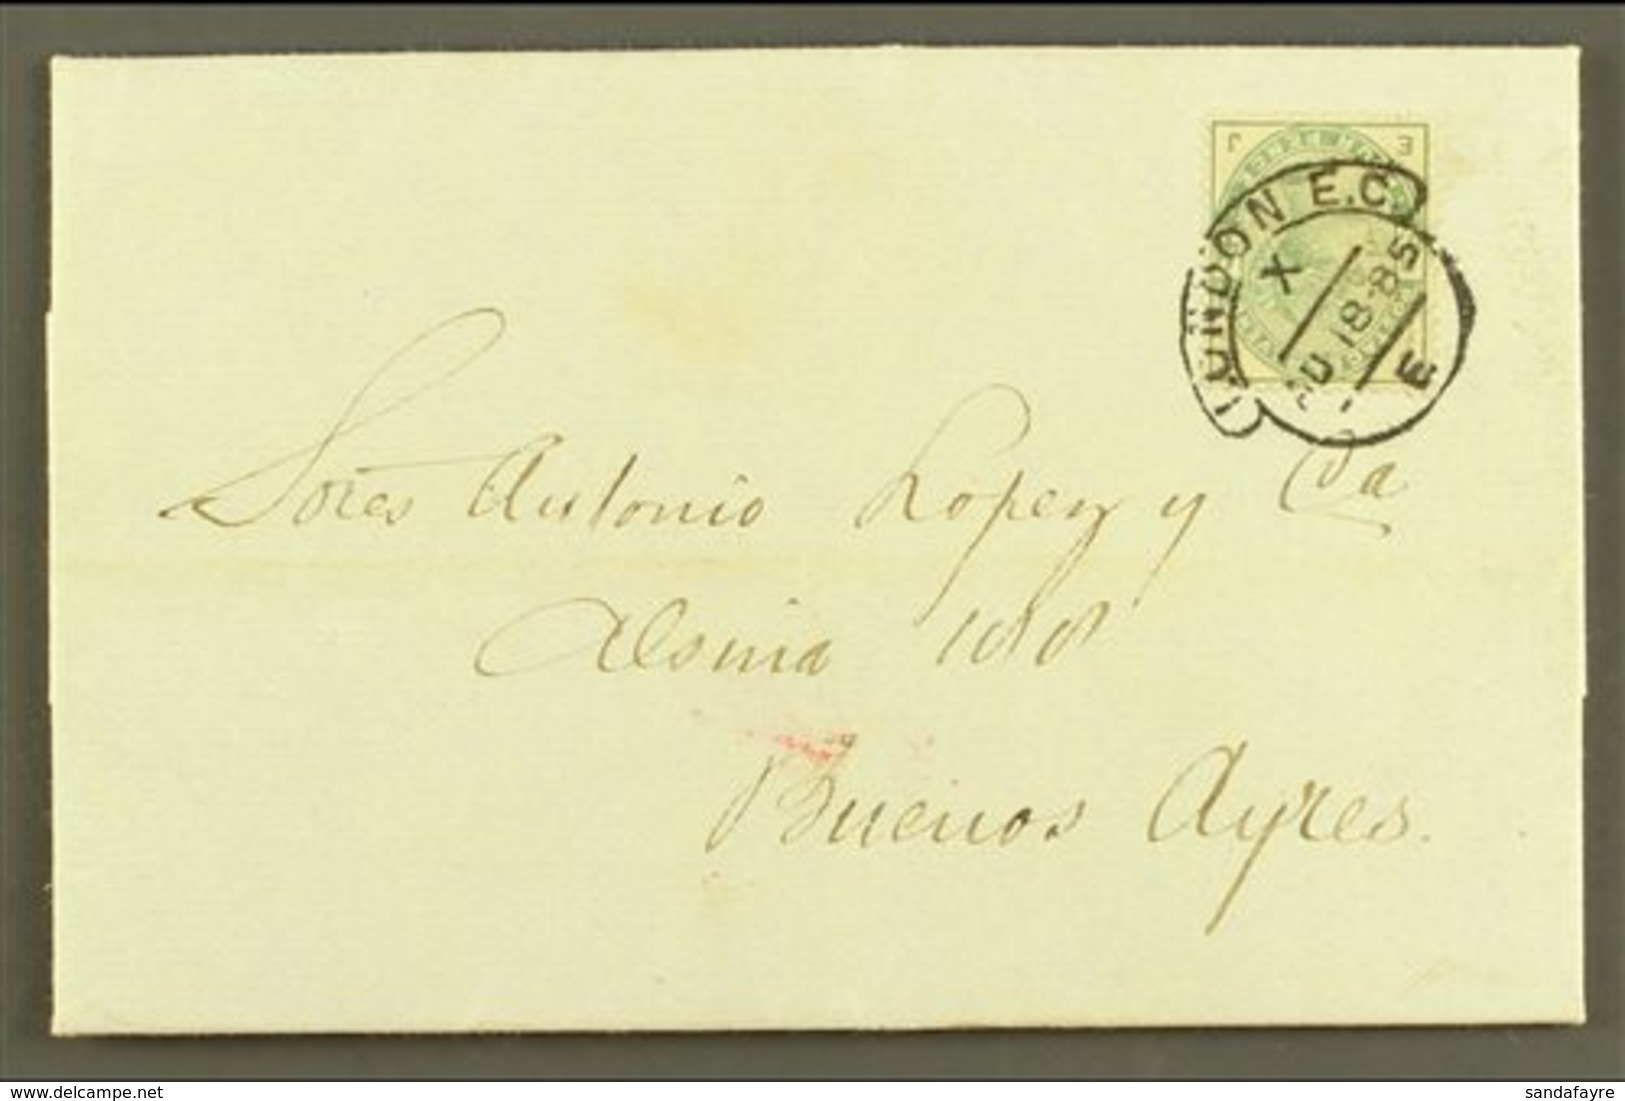 E J
LONDON E.C.
X
18-85
E
Sores Antonio Lopez y Ca
Alsina 108
Buenos Ayres.
delcampe.net
sandafayre